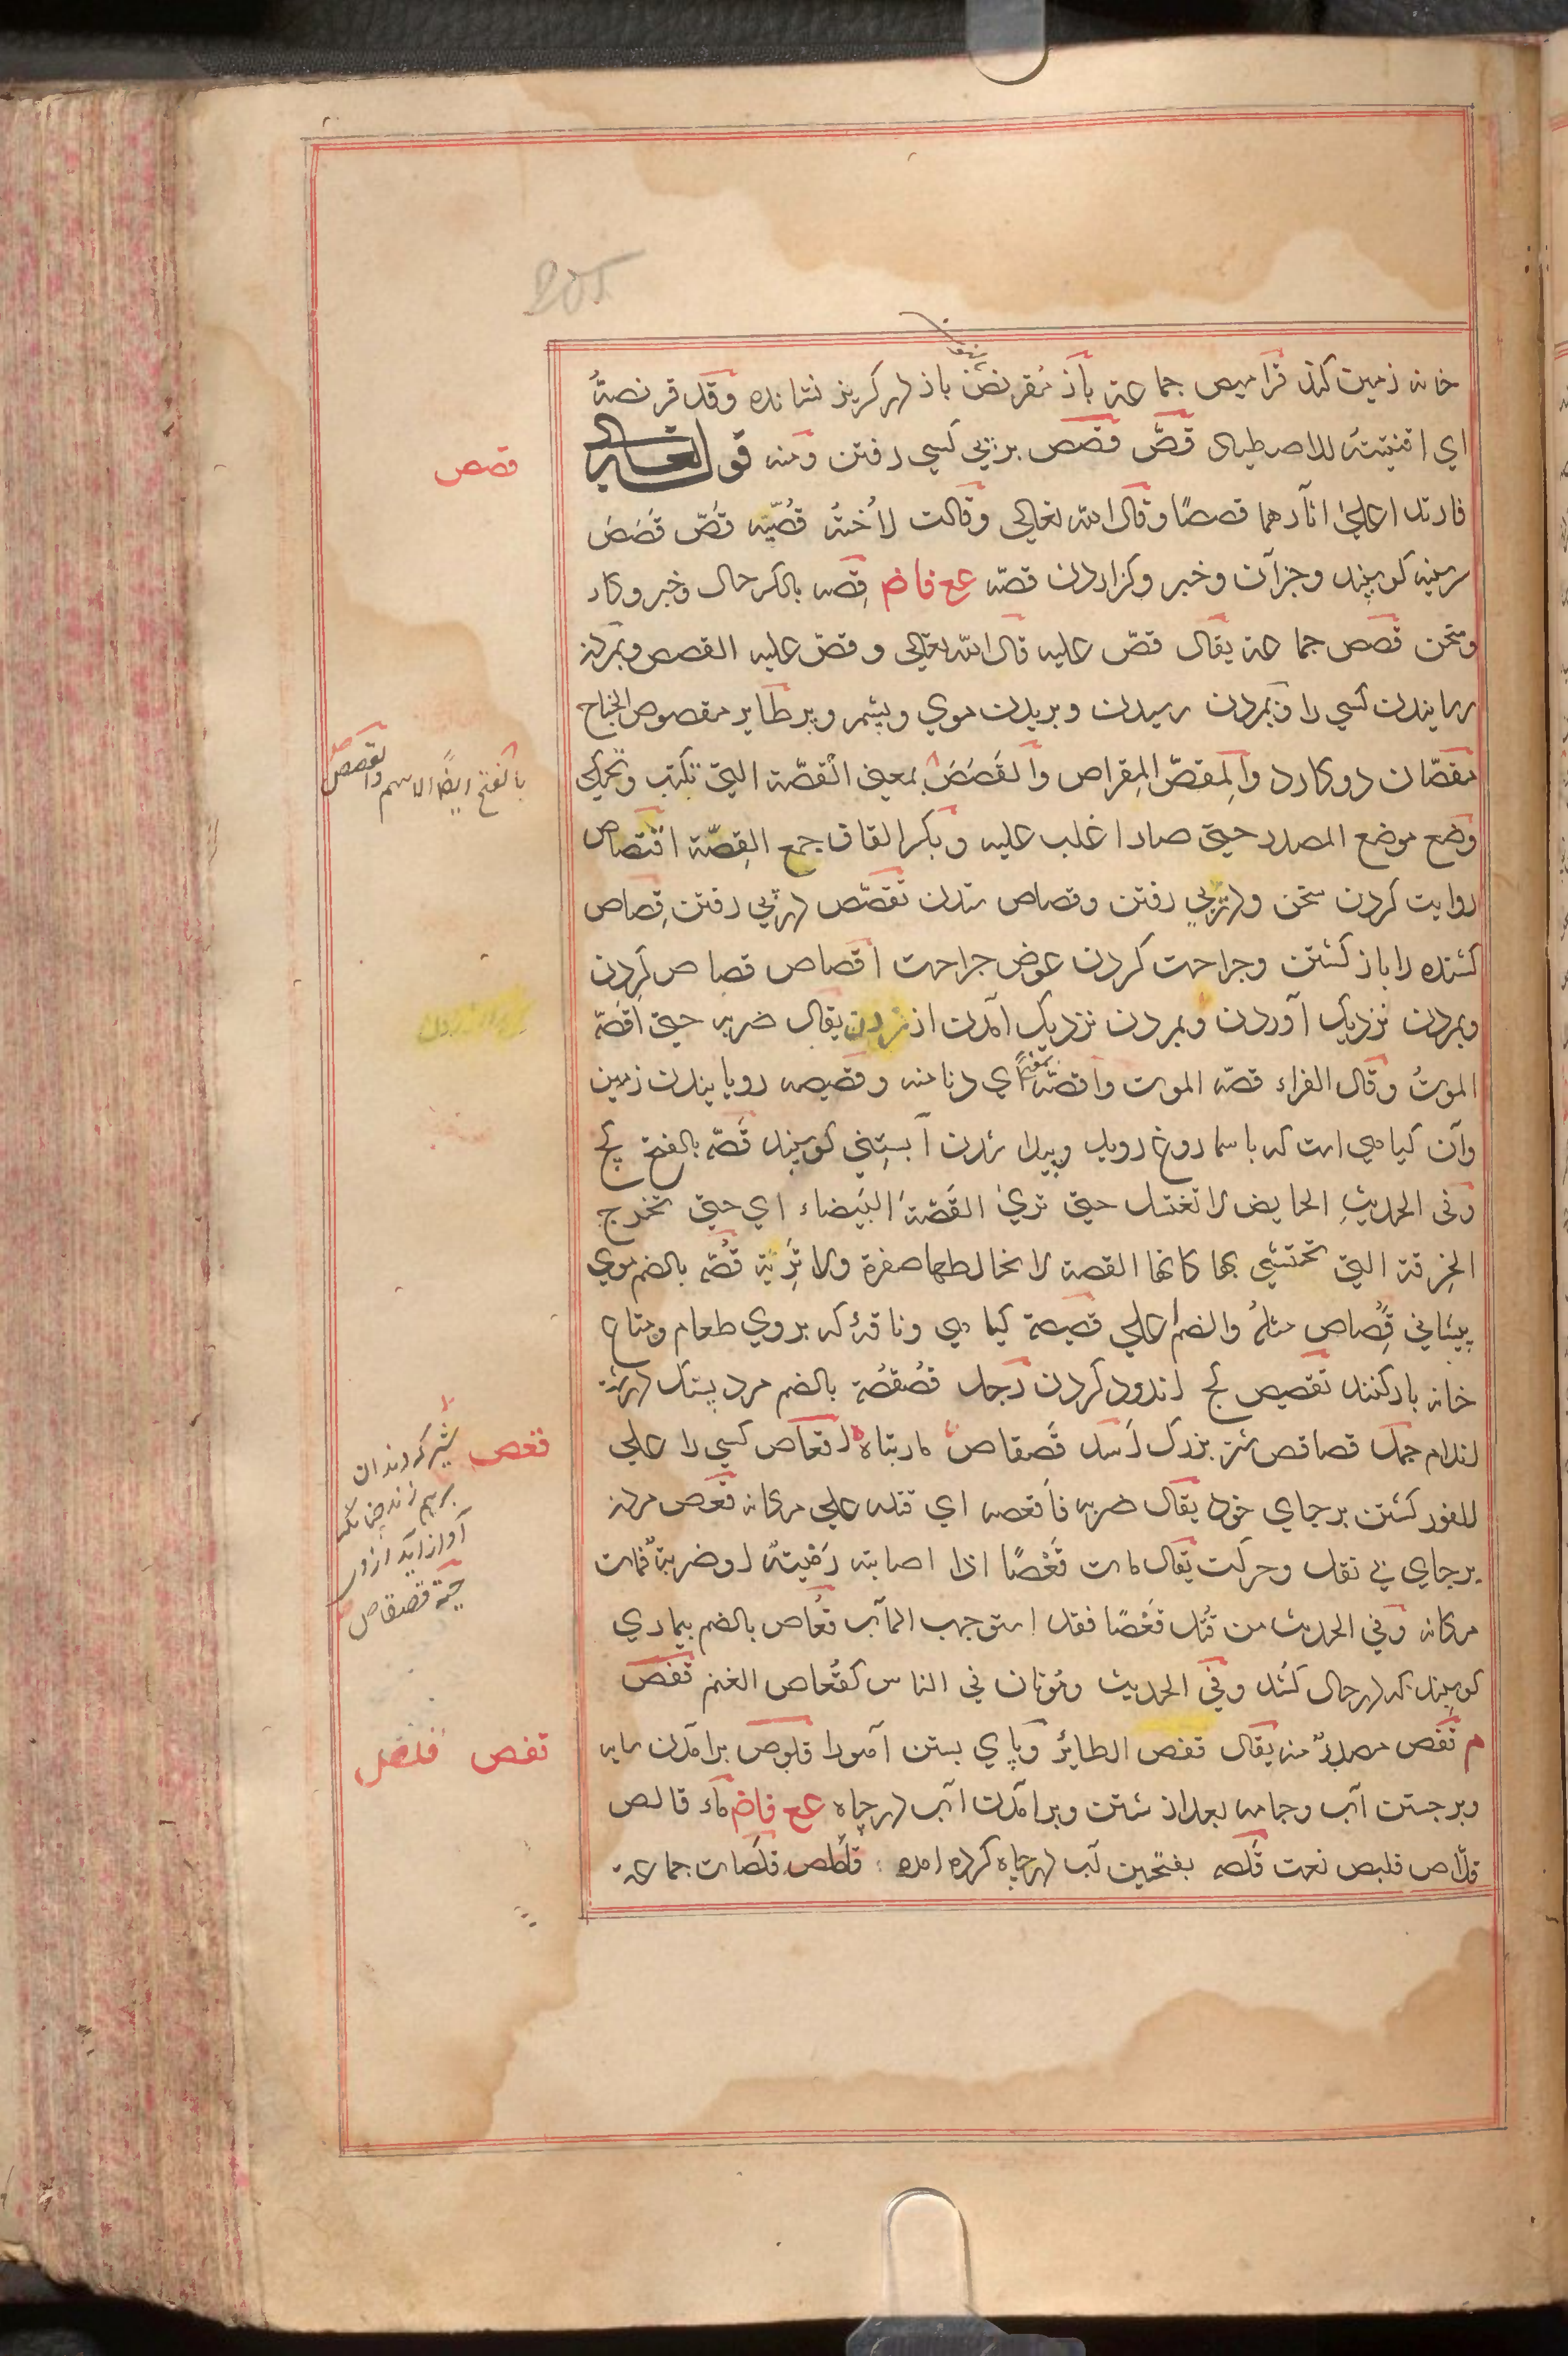 205
خانه زمین کند قرامیص جماعته باز مقرنص باز در کریز نشانده وقد قرنصته
ای اقتنیته للاصطیاد قصّ قصص بر پی کسی رفتن ومنه قوله تعالی
قصص
فارتدا علی آثارهما قصصًا وقال الله تعالی وقالت لاُخته قُصّیه قصّ قَصَص
سینه کوسپند وجز آن وخبر وکزاردن قصّه عع فاض قِصّه بالکسر حال وخبر وکار
وسخن قصص جماعته یقال قصّ علیه قال الله تعالی وقصّ علیه القصص وبمرک
رسانیدن کسی را وبمردن رسیدن وبریدن موی وپشم وپر طایر مقصوص الجناح
مقصّان دوکارد والمِقصّ المِقراص والقَصَصُ بمعنی القصّة التی تکتب وتحکی
بالفتح ایضًا الاسم والقصص
وضع موضع المصدر حتی صار اغلب علیه وبکسر القاف جمع القِصّة اقتصاص
روایت کردن سخن وبر پی رفتن وقصاص ستدن تقصّص بر پی رفتن قِصاص
کشنده را باز کشتن وجراحت کردن عوض جراحت اقصاص قصاص کردن
وبمردن نزدیک آوردن وبمردن نزدیک آمدن از زدن یقال ضربه حتی اقصّه
الموتُ وقال الفراء قصّه الموت واقصّه بمعنی ای دنا منه وقصیصه رویانیدن زمین
وآن کیاهی است که با سماروغ روید وپیدا شدن آبستنی کوسپند قَصّه بالفتح کج
وفی الحدیثِ الحایض لا تغتسل حتی تری القَصّةَ البَیضاء ای حتی تخرج
الخِرقة التی تحتشی بها کانّها القصة لا یخالطها صفرة ولا تَرِیّة قُصّه بالضم موی
پیشانی قُصاص مثلهُ والضم اعلی قصیصة کیاهی وناقهٔ که بروی طعام ومتاع
خانه بار کنند تقصیص کج اندود کردن رجل قُصقُصة بالضم مرد پست درشت
اندام جمل قصاقص شتر بزرک اَسد قَصقاص مار تباه اقعاص کسی را علی
قعص
شیر که دندان
برهم زند چنانکه
آواز آید ازو
حیّة قصقاص
للفور کشتن بر جای خود یقال ضربه فاَقعصه ای قتله علی مکانه قعص مرک
بر جای بی نقل وحرکت یقال مات قَعْصًا اذا اصابته رَمْیتهٌ او ضربةٌ فمات
مکانه وفی الحدیث من قُتل قَعْصًا فقد استوجب المآب قُعاص بالضم بیماری
کوسپند که در حال کشد وفی الحدیث ومُوتان فی الناس کقُعاص الغنم قفص
م قَفَص مصدرٌ منه یقال قفص الطایرُ وپای بستن آهورا قلوص برآمدن سایه
قفص قلص
وبرجستن آب وجامه بعد از شستن وبرآمدن آب در چاه عع فاض ماء قالص
قلاّص قلیص نعت قَلَصه بفتحین آب در چاه کرد آمده قَلَص قلصات جماعته